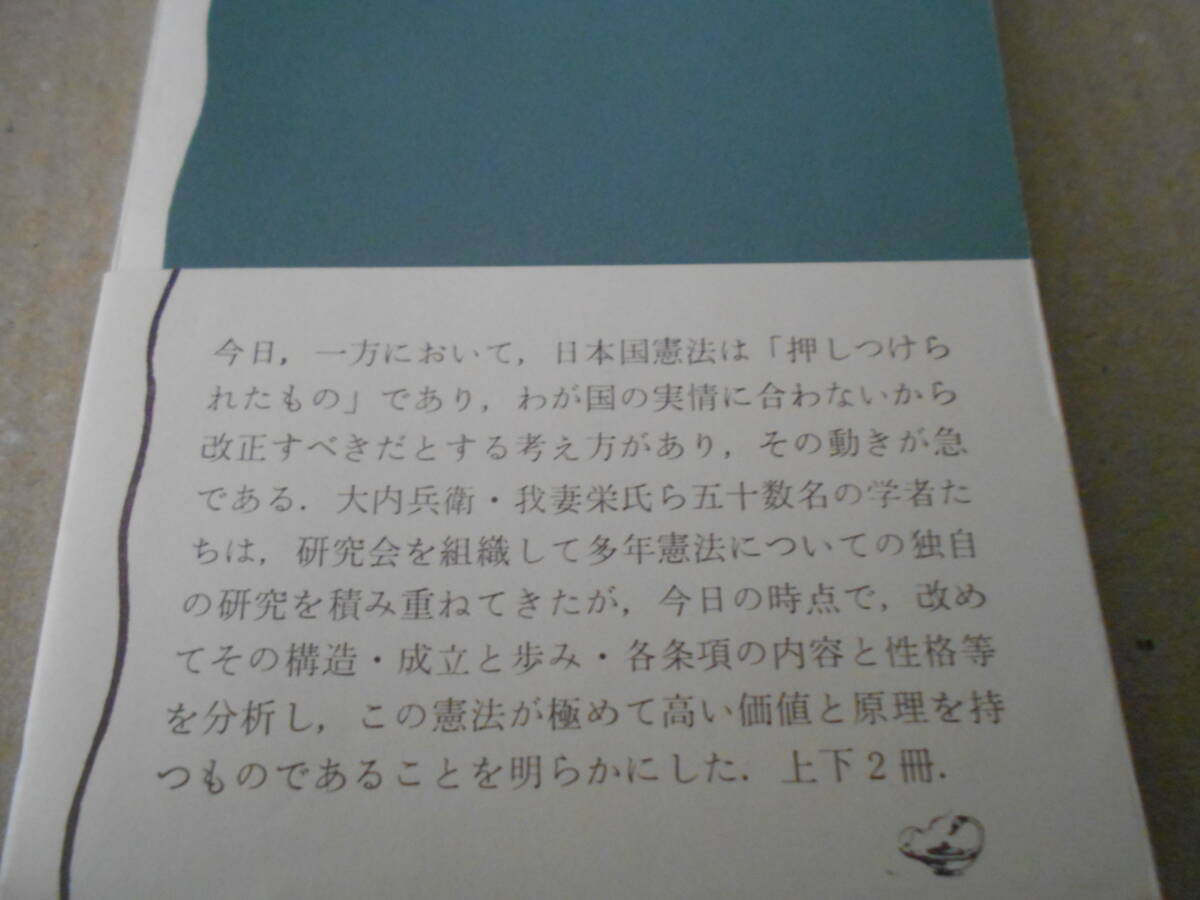 今日，一方において，日本国憲法は「押しつけら
れたもの」であり，わが国の実情に合わないから
改正すべきだとする考え方があり，その動きが急
である．大内兵衛・我妻栄氏ら五十数名の学者た
ちは，研究会を組織して多年憲法についての独自
の研究を積み重ねてきたが，今日の時点で，改め
てその構造・成立と歩み・各条項の内容と性格等
を分析し，この憲法が極めて高い価値と原理を持
つものであることを明らかにした．上下2冊．